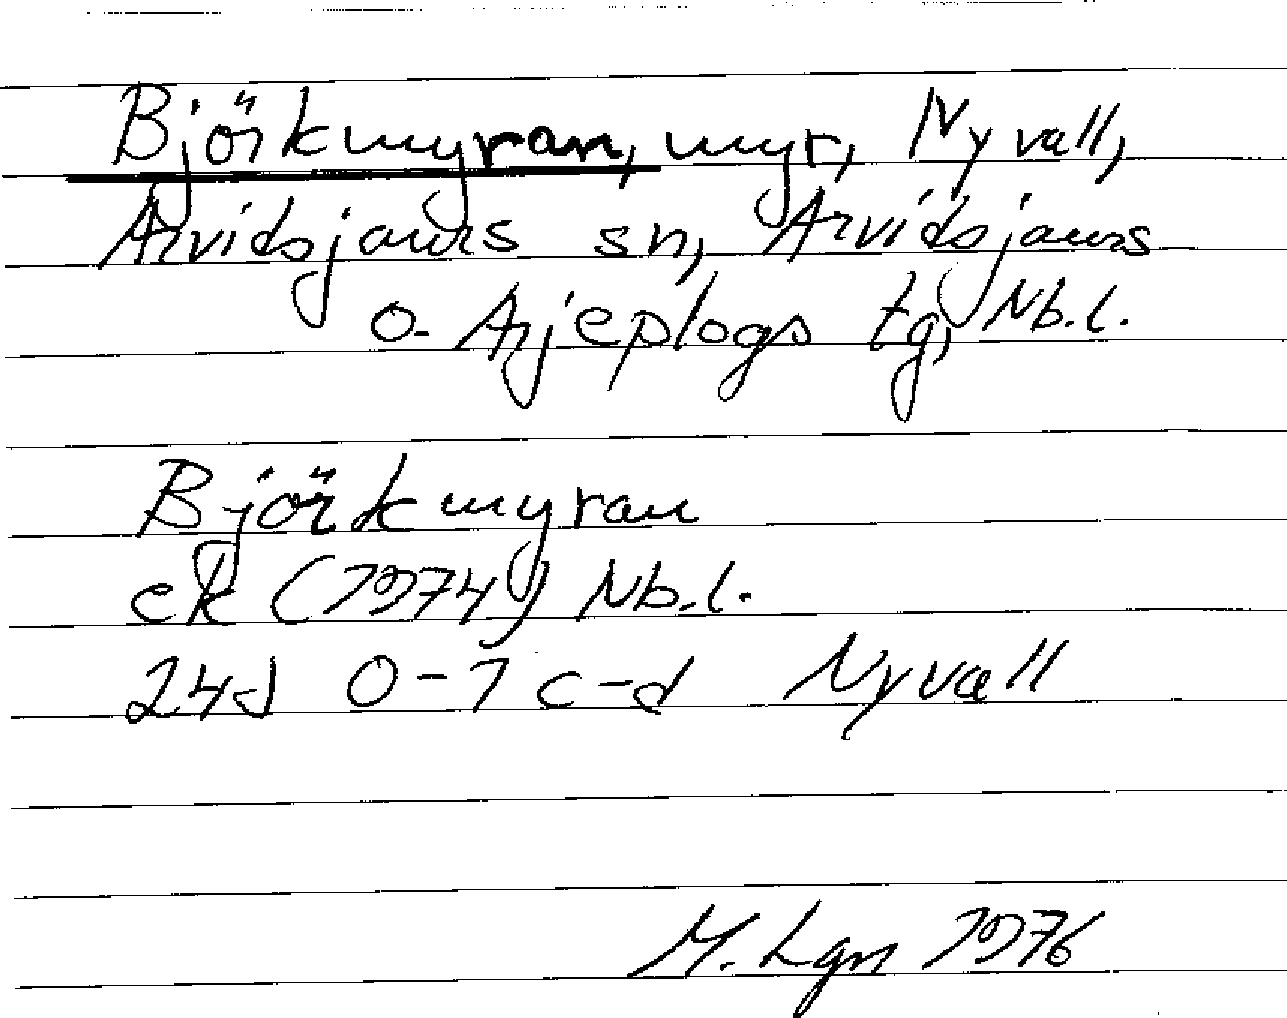 Björkmyran, myr, Nyvall,
Arvidsjaurs sn, Arvidsjaurs
o. Arjeplogs tg, Nb.l.
Björkmyran
ek (1974) Nb.l.
24J 0-1 c-d Nyvall
M. Lgn 1976